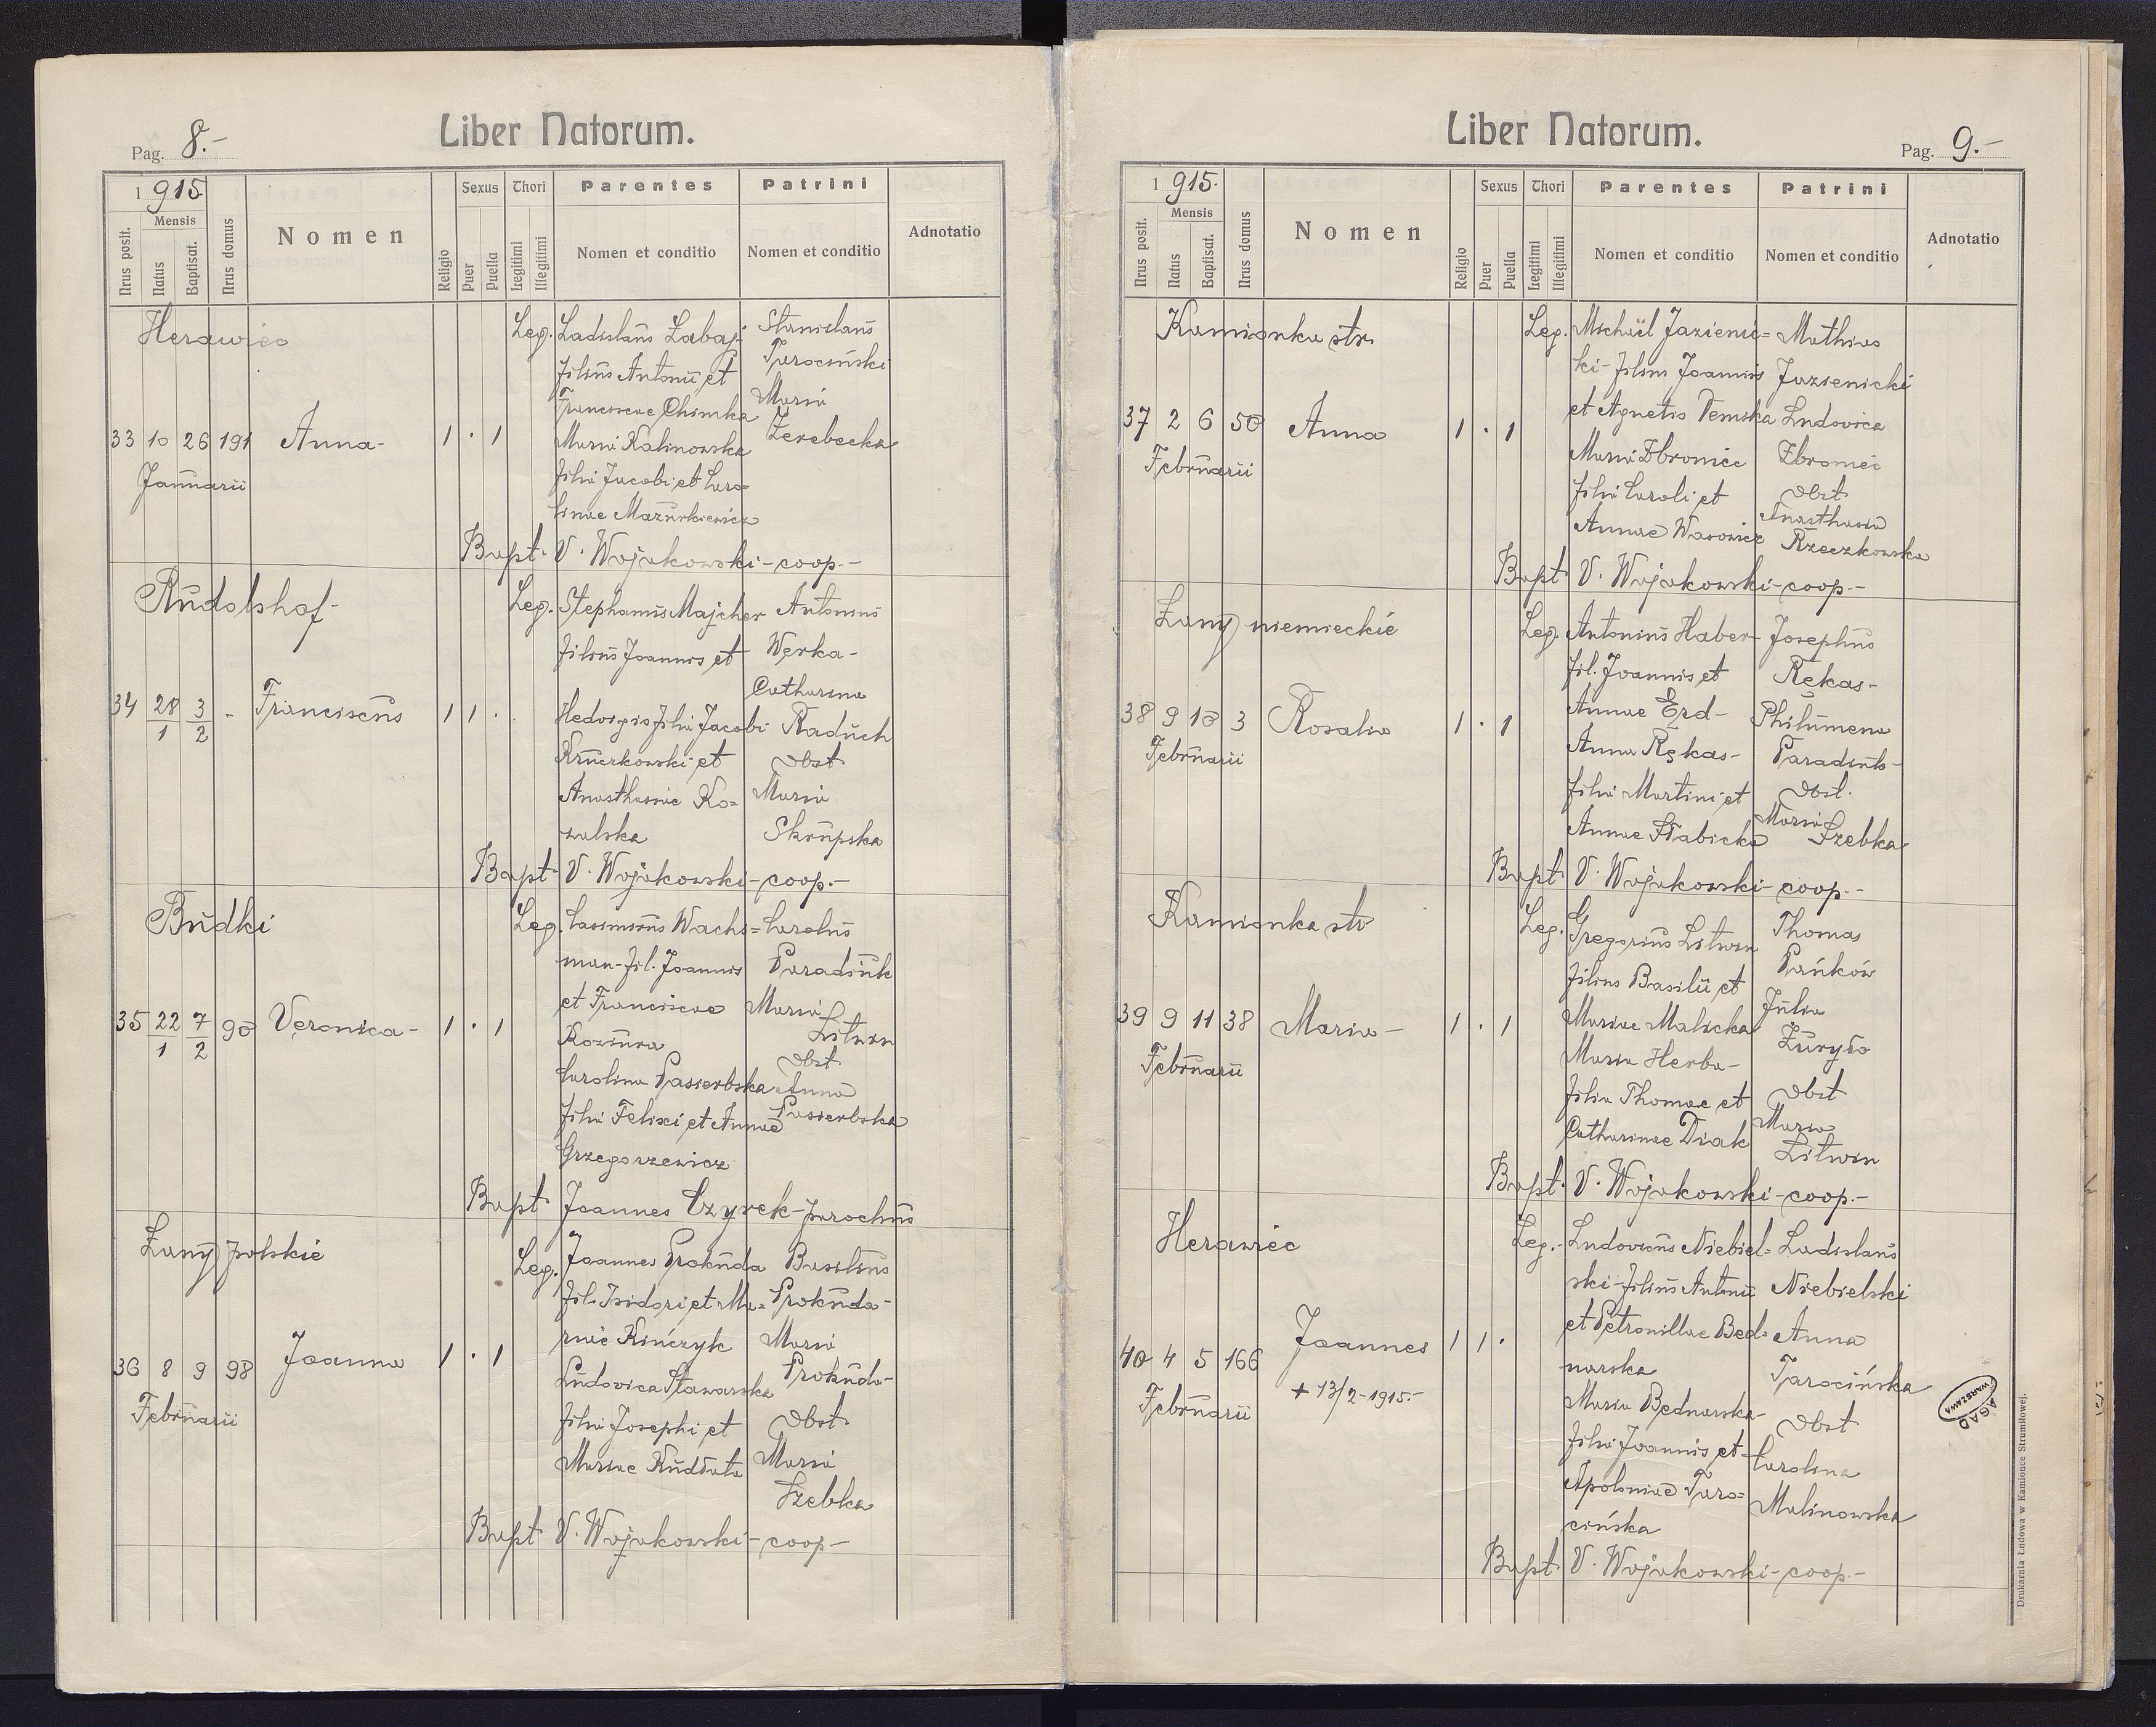 Pag. 8.-
Liber Natorum.
1915.
Nrus posit.
Mensis
Natus
Baptisat.
Nrus domus
Nomen
Religio
Sexus
Puer
Puella
Thori
Legitimi
Illegitimi
Parentes
Nomen et conditio
Patrini
Nomen et conditio
Adnotatio
Herawiec
33 10 26 191 Anna- 1 · 1
Januarii
Leg. Ladislaus Zabaj-
filius Antonii et
Franciscae Chimka
Maria Kalinowska
filia Jacobi et Caro=
linae Mazurkiewicz
Stanislaus
Tarociński
Maria
Żerebecka
Bapt. V. Wojakowski-coop.-
Rudolshof-
34 28/1 3/2 - Franciscus 1 1 ·
Leg. Stephanus Majcher
filius Joannis et
Hedvigis filia Jacobi
Kruczkowski et
Anasthasiae Ko=
walska
Antonius
Werka-
Catharina
Raduch
Obst.
Maria
Skrupska
Bapt. V. Wojakowski-coop.-
Budki
35 22/1 7/2 90 Veronica- 1 · 1
Leg. Casimirus Wachs=
man-fil. Joannis
et Franciscae
Koziura
Carolina Pasierbska
filia Felixi et Annae
Grzegorzewicz
Carolus
Paradiuk
Maria
Litwin
Obst.
Anna
Pasierbska
Bapt. Joannes Czyrek-parochus
Łany polskie
36 8 9 98 Joanna 1 · 1
Februarii
Leg. Joannes Prokuda
fil. Isidori et Ma=
riae Kińczyk
Ludovica Stawarska
filia Josephi et
Mariae Rudłata
Basilius
Prokuda-
Maria
Prokuda-
Obst.
Maria
Szebka
Bapt. V. Wojakowski-coop-
Liber Natorum.
Pag. 9.-
1915.
Nrus posit.
Mensis
Natus
Baptisat.
Nrus domus
Nomen
Religio
Sexus
Puer
Puella
Thori
Legitimi
Illegitimi
Parentes
Nomen et conditio
Patrini
Nomen et conditio
Adnotatio
Kamionka str.
37 2 6 50 Anna 1 · 1
Februarii
Leg. Michaël Jazienic=
ki-filius Joannis
et Agnetis Demska
Maria Zbroniec
filia Caroli et
Annae Wasowicz
Mathias
Jazienicki
Ludovica
Zbroniec
Obst.
Anasthasia
Rzeczkowska
Bapt. V. Wojakowski-coop.-
Łany niemieckie
38 9 10 3 Rosalia 1 · 1
Februarii
Leg. Antonius Haber-
fil. Joannis et
Annae Erd-
Anna Rękas-
filia Martini et
Annae Słabicka
Josephus
Rękas-
Philumena
Paradiuk-
Obst.
Maria
Szebka
Bapt. V. Wojakowski-coop.-
Kamionka str.
39 9 11 38 Maria- 1 · 1
Februarii
Leg. Gregorius Litwin
filius Basilii et
Mariae Malicka
Maria Herba-
filia Thomae et
Catharinae Diak
Thomas
Pańków
Julia
Żuryło
Obst
Maria
Litwin
Bapt. V. Wojakowski-coop.-
Herawiec
40 4 5 166 Joannes 1 1 ·
Februarii
+ 13/2-1915.-
Leg.- Ludovicus Niebiel=
ski-filius Antonii
et Petronillae Bed=
narska
Maria Bednarska-
filia Joannis et
Apoloniae Taro=
cińska
Ladislaus
Niebielski
Anna
Tarocińska
Obst
Carolina
Malinowska
Bapt. V. Wojakowski-coop.-
AGAD
WARSZAWA
Drukarnia Ludowa w Kamionce Strumiłowej.